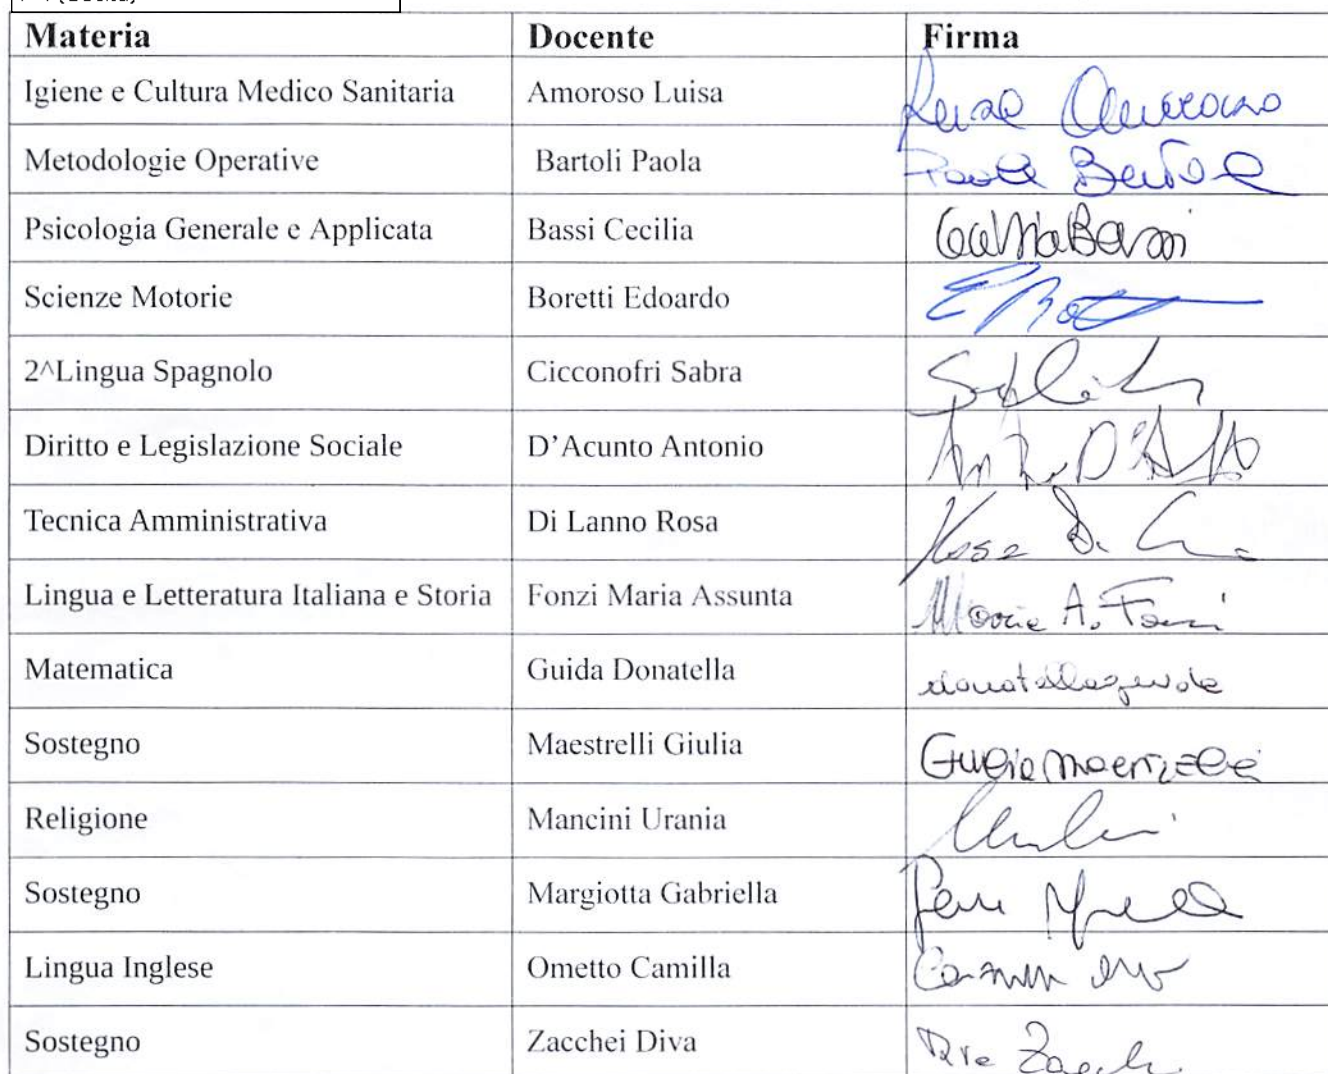 Materia Docente Firma
Igiene e Cultura Medico Sanitaria Amoroso Luisa
Metodologie Operative Bartoli Paola Paola Bartoli
Psicologia Generale e Applicata Bassi Cecilia Cecilia Bassi
Scienze Motorie Boretti Edoardo
2^Lingua Spagnolo Cicconofri Sabra
Diritto e Legislazione Sociale D’Acunto Antonio
Tecnica Amministrativa Di Lanno Rosa Rosa Di
Lingua e Letteratura Italiana e Storia Fonzi Maria Assunta Maria A. Fonzi
Matematica Guida Donatella donatella guida
Sostegno Maestrelli Giulia Giulia Maestrelli
Religione Mancini Urania
Sostegno Margiotta Gabriella
Lingua Inglese Ometto Camilla
Sostegno Zacchei Diva Diva